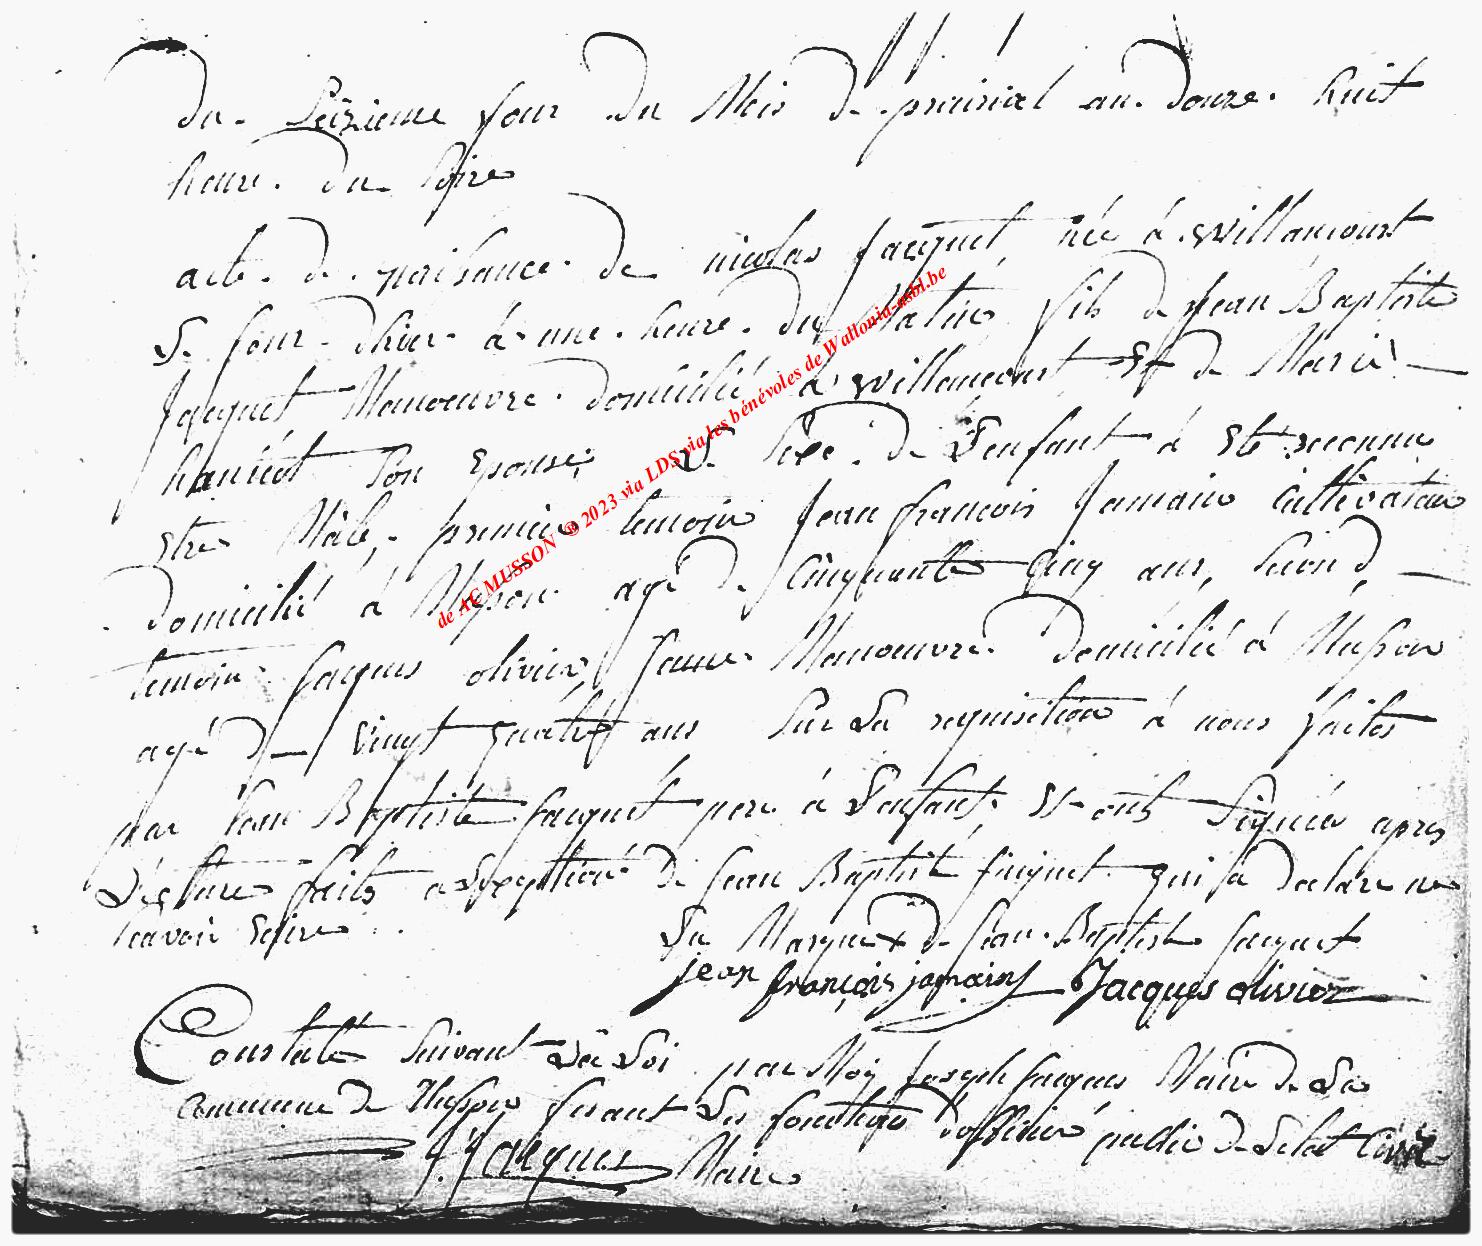 du Seizieme jour du Mois de prairial an douze huit
heure du soire
acte de naisance de nicolas jacquet née á willancourt
Le jour dhier á une heure du Matin, fils de jean Baptiste
jacquet Manoeuvre domicilié á willancourt Et de Marie
haniéot son Epouse, Le sexe de L'enfant á Ete reconnu
Etre Mâle, premier temoin jean françois jamain Cultivateur
domicilié á Musson agé de Cinquante Cinq ans, second
temoin jacques olivier, jeune Manoeuvre domicilié á Musson
agé de vingt quatre ans sur La requisition á nous faites
par jean Baptiste jacquet pere á L'enfant, Et ont Signée apres
Lecture faite a Lexeption de jean Baptiste jacquet qui a declaré ne
savoir Ecrire
La Marque x de jean Baptiste jacquet
jean françois jamain Jacques olivier
Constaté suivant La Loi par Moy joseph jacques Maire de La
Commune de Musson fesant Les fonctions d'officier public de Letat Civil
J. Jacques Maire
de AC MUSSON ® 2023 via LDS via les bénévoles de Wallonia-asbl.be